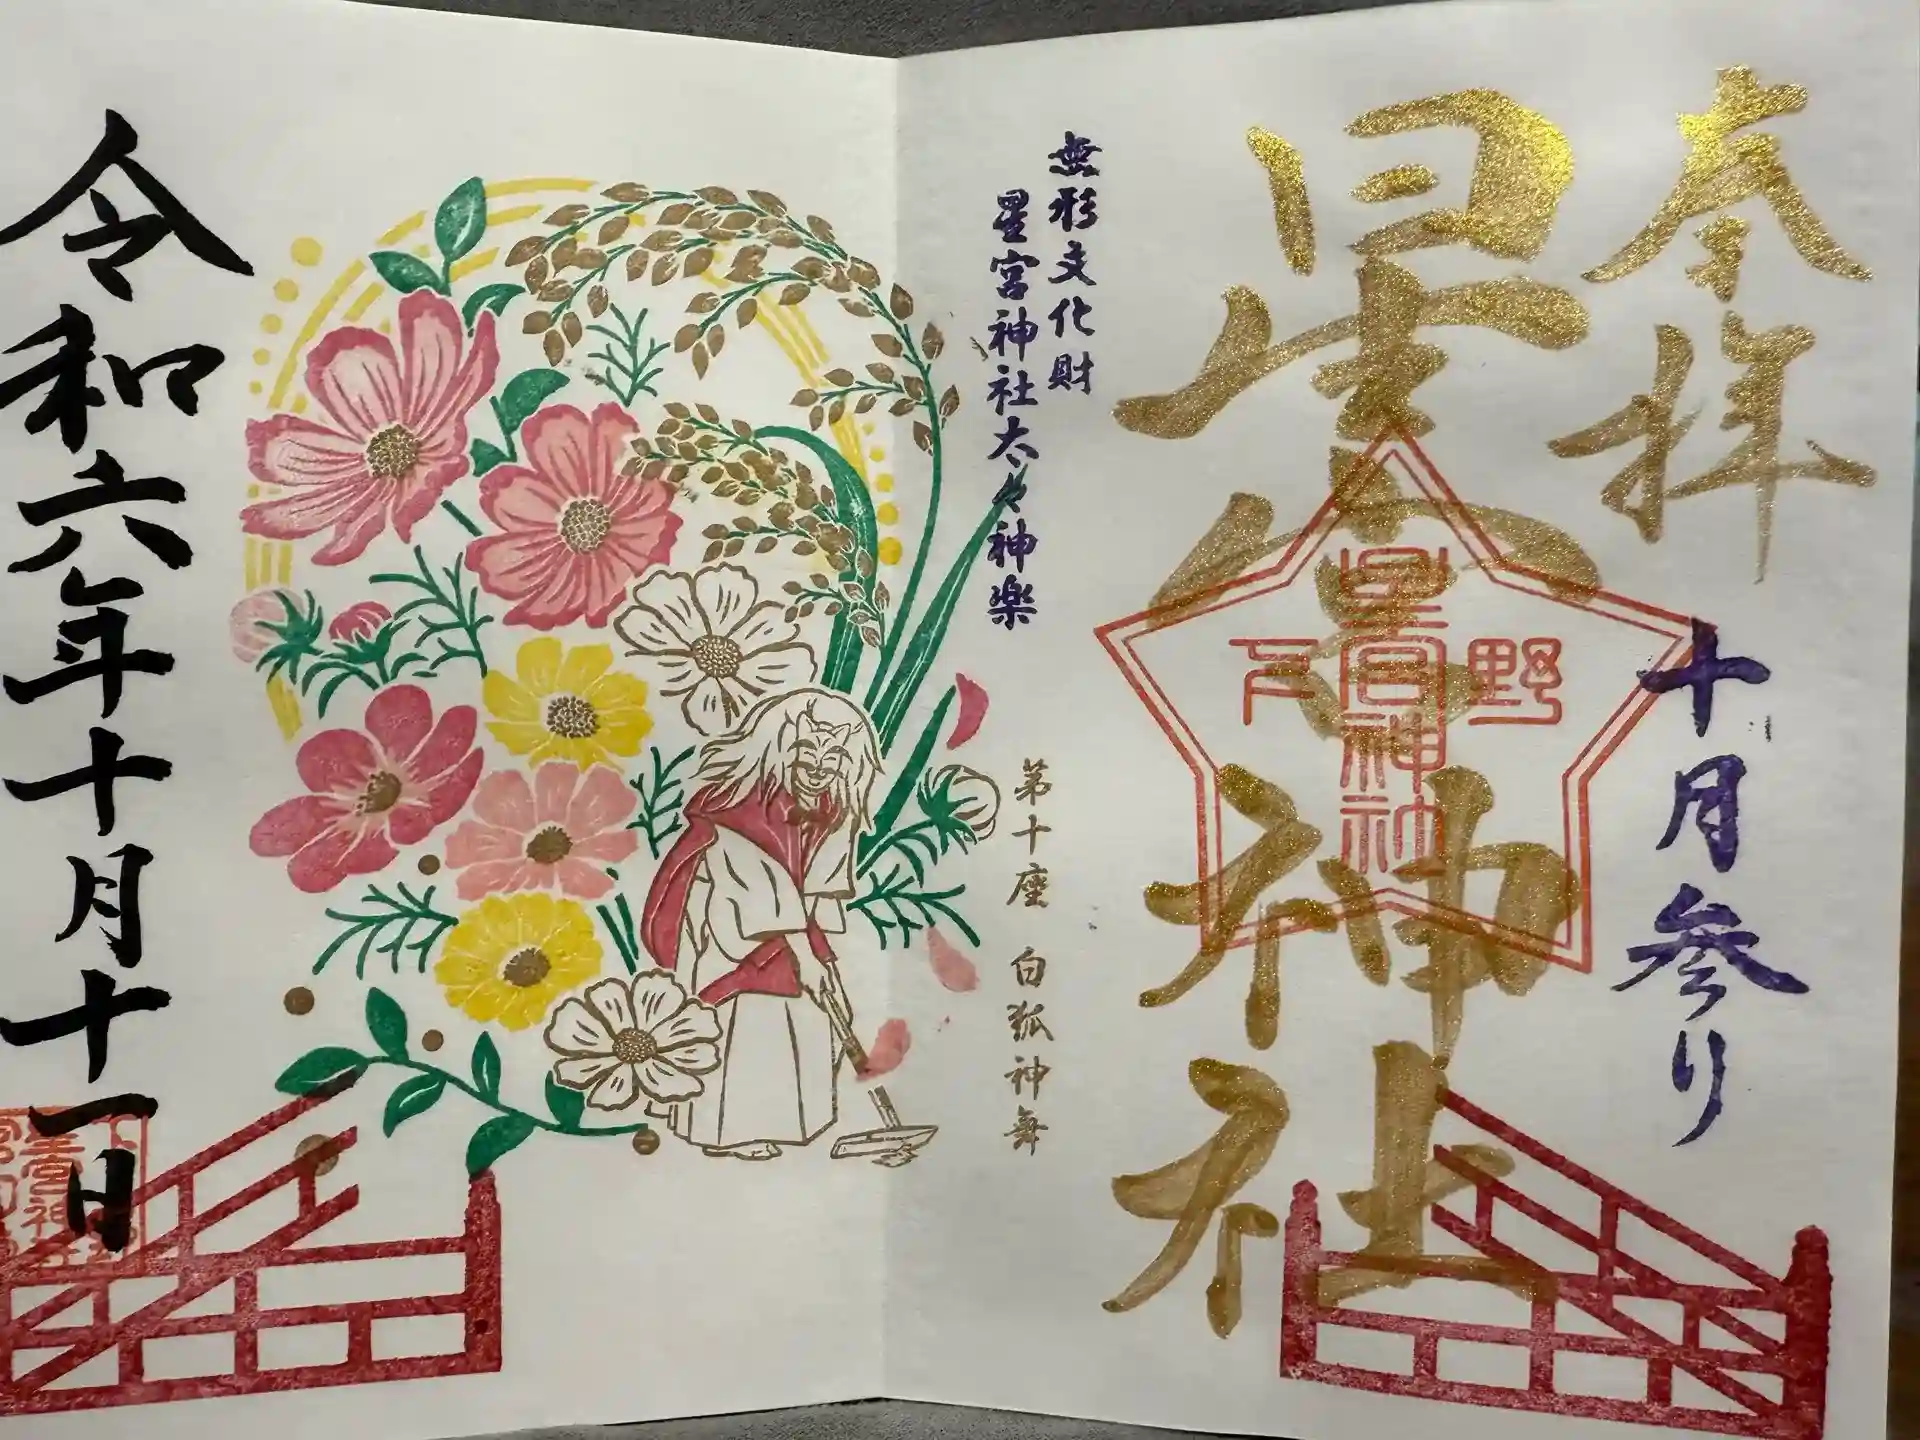 奉拝
十月参り
星宮神社
下
星宮神社
野
無形文化財
星宮神社太々神楽
第十座 白狐神舞
令和六年十月十一日